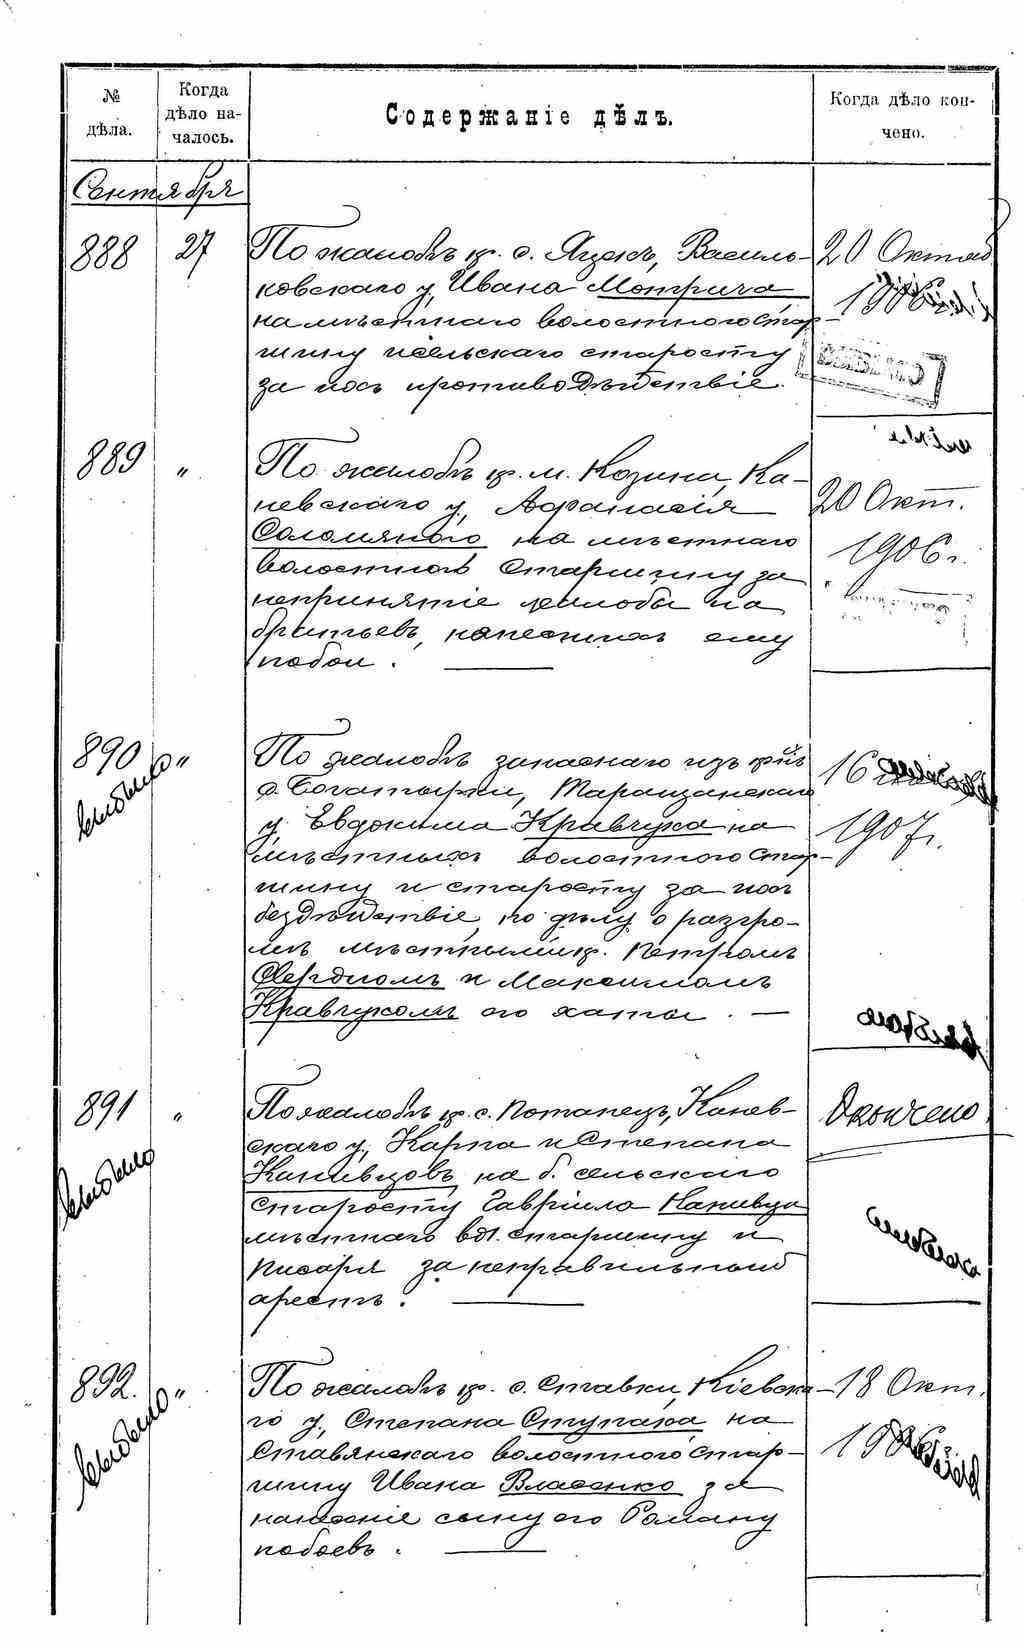 № дѣла.
Когда дѣло началось.
Содержаніе дѣлъ.
Когда дѣло кончено.
Сентября
888 27 По жалобѣ кр. с. Яцекъ, Василь- 20 Октяб
ковскаго у, Ивана Мотрича 1906
на мѣстнаго волостного стар-
шину и сельскаго старосту
за ихъ противодѣйствіе.
889 " По жалобѣ кр. м. Козина, Ка-
невскаго у, Афанасія 20 Окт.
Соломяного на мѣстнаго 1906 г.
волостного старшину за
непринятіе жалобы на
братьевъ, нанесшихъ ему
побои.
890 " По жалобѣ запаснаго изъ кр. 16
выбыло с. Богатырки, Таращанскаго
у, Евдокима Кравчука на 1907 г.
мѣстныхъ волостного стар-
шину и старосту за ихъ
бездѣйствіе по дѣлу о разгро-
мѣ мѣстными кр. Петромъ
и Максимомъ
Кравчукомъ его хаты.
891 " По жалобѣ кр. с. Потапецъ, Канев- Окончено
выбыло скаго у, Карпа и Степана
Канивцовъ на б. сельскаго
старосту Гавріила Канивца
мѣстнаго вол. старшину и
писаря за неправильный
арестъ.
892. " По жалобѣ кр. с. Ставки, Кіевска- 18 Окт.
выбыло го у, Степана Ступака на 1906
Ставянскаго волостного стар-
шину Ивана Власенко за
нанесеніе сыну его Роману
побоевъ.